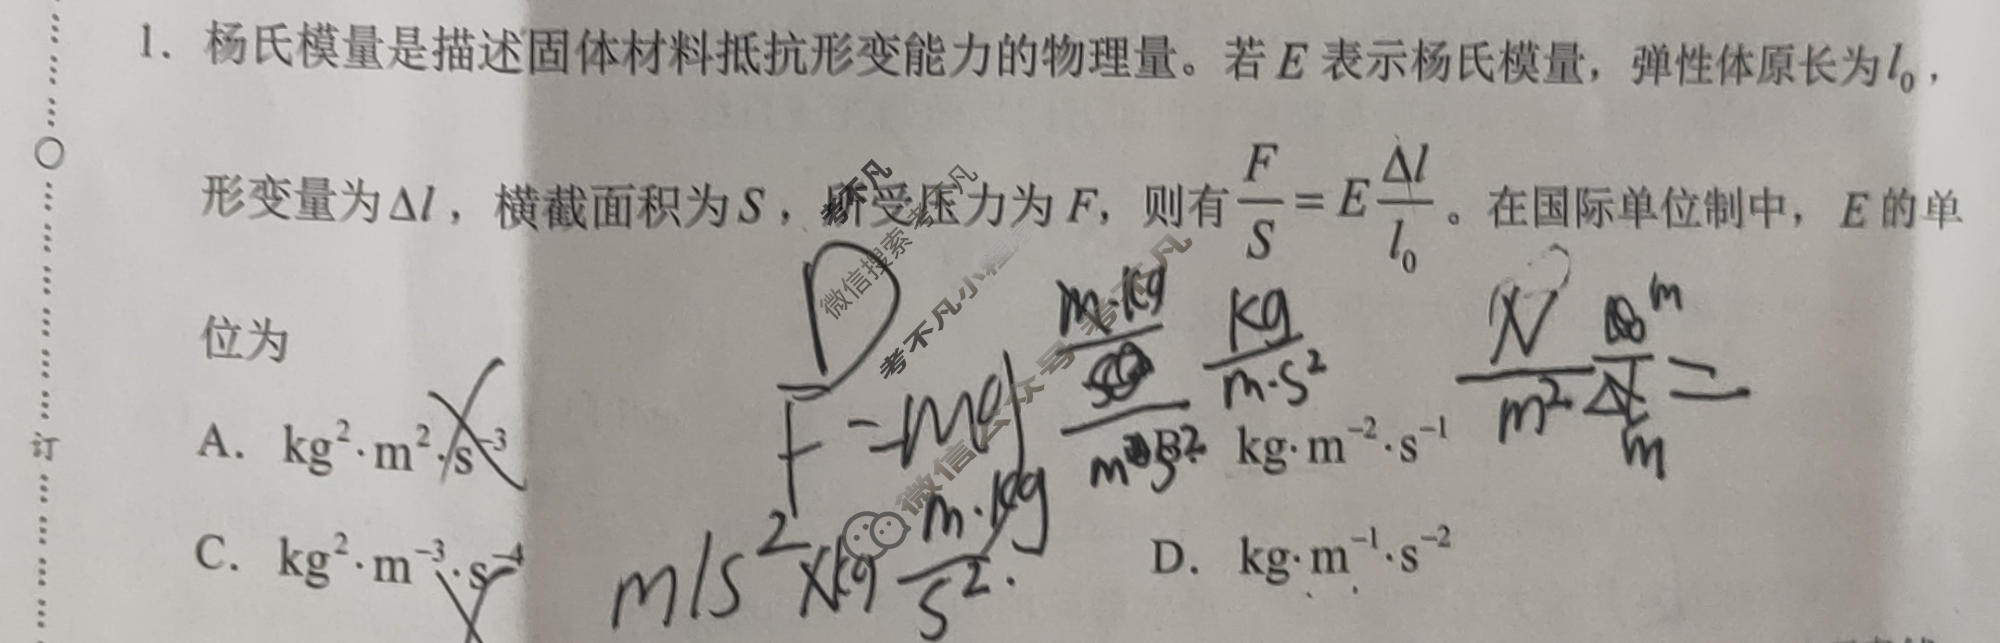 1. 杨氏模量是描述固体材料抵抗形变能力的物理量。若 E 表示杨氏模量，弹性体原长为 l₀，
形变量为 Δl，横截面积为 S，所受压力为 F，则有 F/S = E Δl/l₀。在国际单位制中，E 的单
位为
D
A. kg²·m²·s⁻³
kg·m⁻²·s⁻¹
C. kg²·m⁻³·s⁻⁴
D. kg·m⁻¹·s⁻²
F=mg
m/s²×kg
m·kg/s²
m·kg
kg/m·s²
N/m²
m
m
=
订
考不凡
微信搜索考不凡
考不凡小程序
微信公众号 考不凡